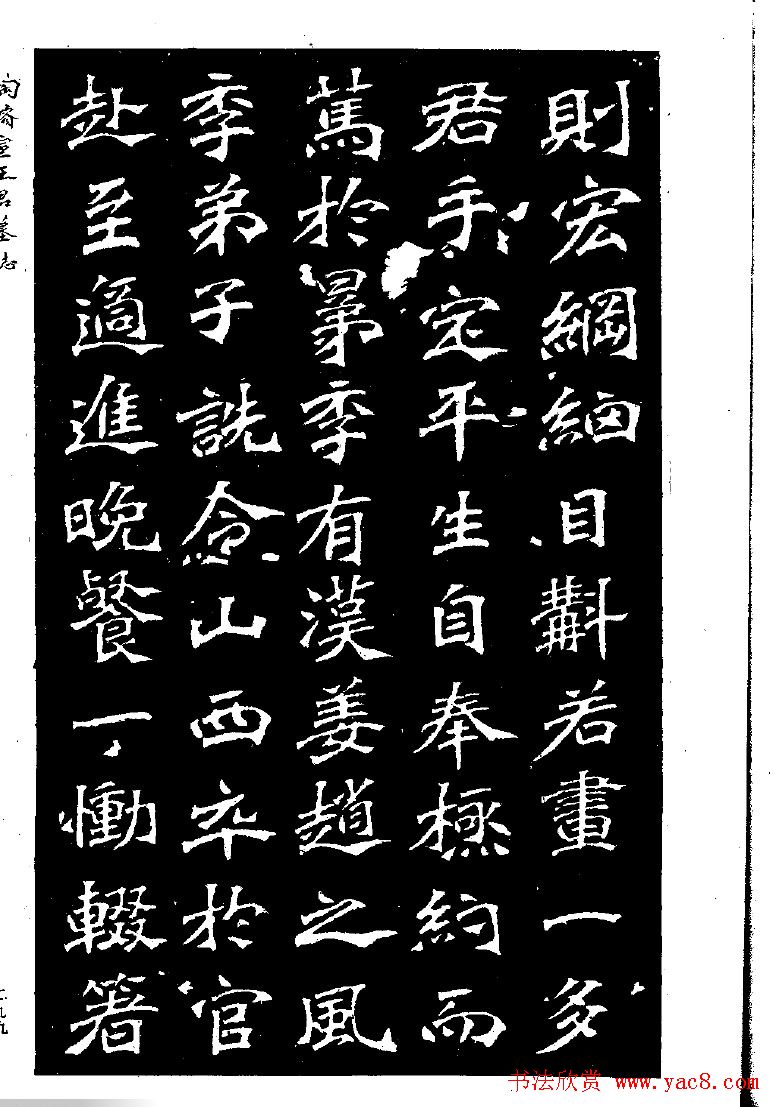 則宏綱細目斠若畫一多
君手定平生自奉極約而
篤於羣季有漢姜趙之風
季弟子詵令山西卒於官
赴至適進晚餐一慟輟箸
陶濬宣王君墓志
书法欣赏 www.yac8.com